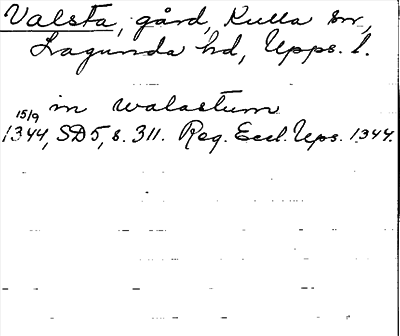 Valsta, gård, Kulla sn,
Lagunda hd, Upps. l.
in walastum
15/9
1344, SD5, s. 311. Reg. Eccl. Ups. 1344.